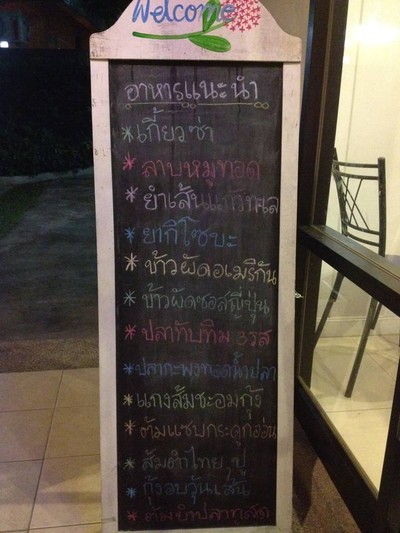 Welcome
อาหารแนะนำ
* เกี้ยวซ่า
* ลาบหมูทอด
* ยำเส้นแก้วทะเล
* ยากิโซบะ
* ข้าวผัดอเมริกัน
* ข้าวผัดซอสญี่ปุ่น
* ปลาทับทิม 3 รส
* ปลากะพงทอดน้ำปลา
* แกงส้มชะอมกุ้ง
* ต้มแซบกระดูกอ่อน
* ส้มตำไทย, ปู
* กุ้งอบวุ้นเส้น
* ต้มยำปลาทูสด